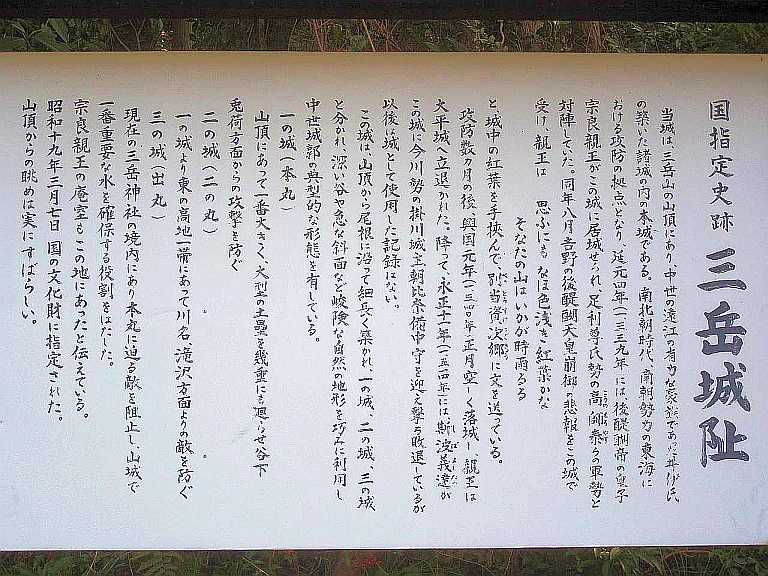 国指定史跡 三岳城趾
当城は、三岳山の山頂にあり、中世の遠江の有力な豪族であった井伊氏
の築いた諸城の内の本城である。南北朝時代、南朝勢力の東海に
おける攻防の拠点となり、延元四年(一三三九年)には、後醍醐帝の皇子
宗良親王がこの城に居城せられ、足利尊氏勢の高師泰らの軍勢と
対陣していた。同年八月吉野の後醍醐天皇崩御の悲報をこの城で
受け、親王は 思ふにも なほ色浅き 紅葉かな
そなたの山は いかが時雨るる
と 城中の紅葉を手挟んで、別当資次郷に文を送っている。
攻防数ヵ月の後、興国元年(一三四〇年)正月空しく落城し、親王は
大平城へ立退かれた。降って、永正十一年(一五一四年)には、斯波義達が
この城に今川勢の掛川城主朝比奈備中守を迎え撃ち敗退しているが
以後は城として使用した記録はない。
この城は、山頂から尾根に沿って細長く築かれ、一の城、二の城、三の城
と分かれ、深い谷や急な斜面など峻険な自然の地形を巧みに利用し
中世城郭の典型的な形態を有している。
一の城(本丸)
山頂にあって一番大きく、大型の土塁を幾重にも廻らせ谷下
兎荷方面からの攻撃を防ぐ
二の城(二の丸)
一の城より東の高地一帯にあって川名、滝沢方面よりの敵を防ぐ
三の城(出丸)
現在の三岳神社の境内にあり本丸に迫る敵を阻止し、山城で
一番重要な水を確保する役割をはたした。
宗良親王の庵室もこの地にあったと伝えている。
昭和十九年三月七日 国の文化財に指定された。
山頂からの眺めは実にすばらしい。